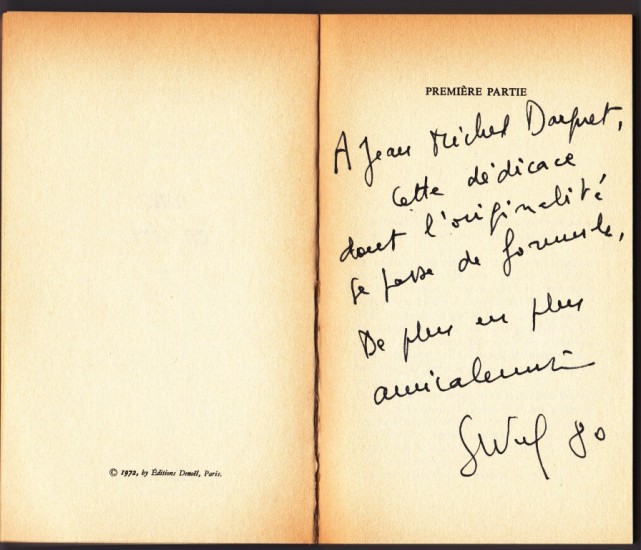 © 1972, by Éditions Denoël, Paris.
PREMIÈRE PARTIE
A Jean Michel
cette dédicace
dont l'originalité
se passe de formule,
De plus en plus
amicalement
80